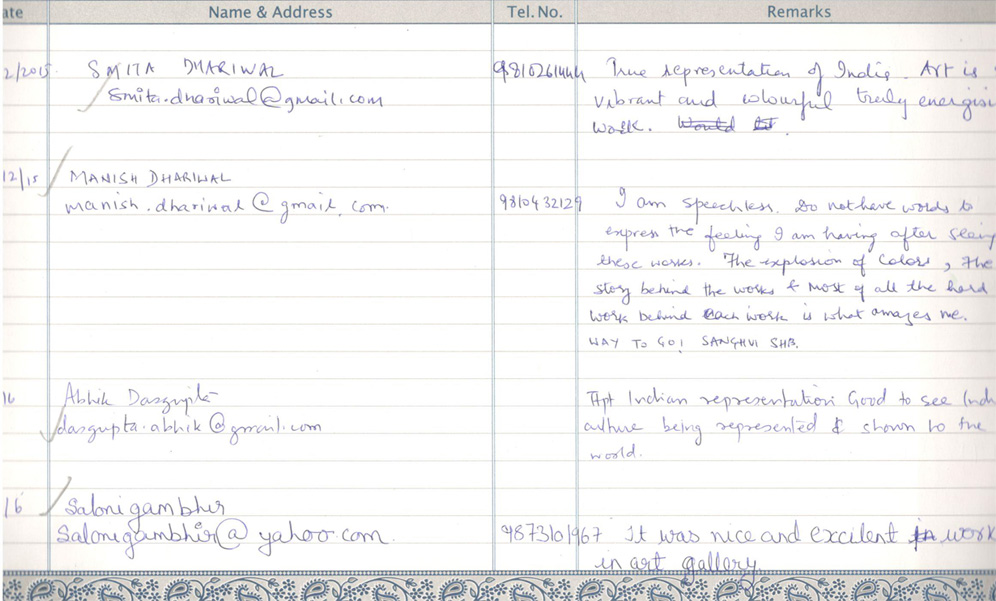 ate Name & Address Tel. No. Remarks
2/2015. SMITA DHARIWAL 9810261444 True representation of India. Art is
smita.dhariwal@gmail.com vibrant and colourful truly energisi
work. Would
12/15 MANISH DHARIWAL
manish.dhariwal@gmail.com. 9810432129 I am speechless. Do not have words to
express the feeling I am having after seeing
these works. The explosion of colors, The
story behind the works & most of all the hard
work behind each work is what amazes me.
WAY TO GO! SANGHVI SHB.
16 Abhik Dasgupta Apt Indian representation. Good to see Indi
dasgupta.abhik@gmail.com culture being represented & shown to the
world.
16 Salonigambhir
Salonigambhir@yahoo.com. 9873101967 It was nice and excilent in work
in art gallery.